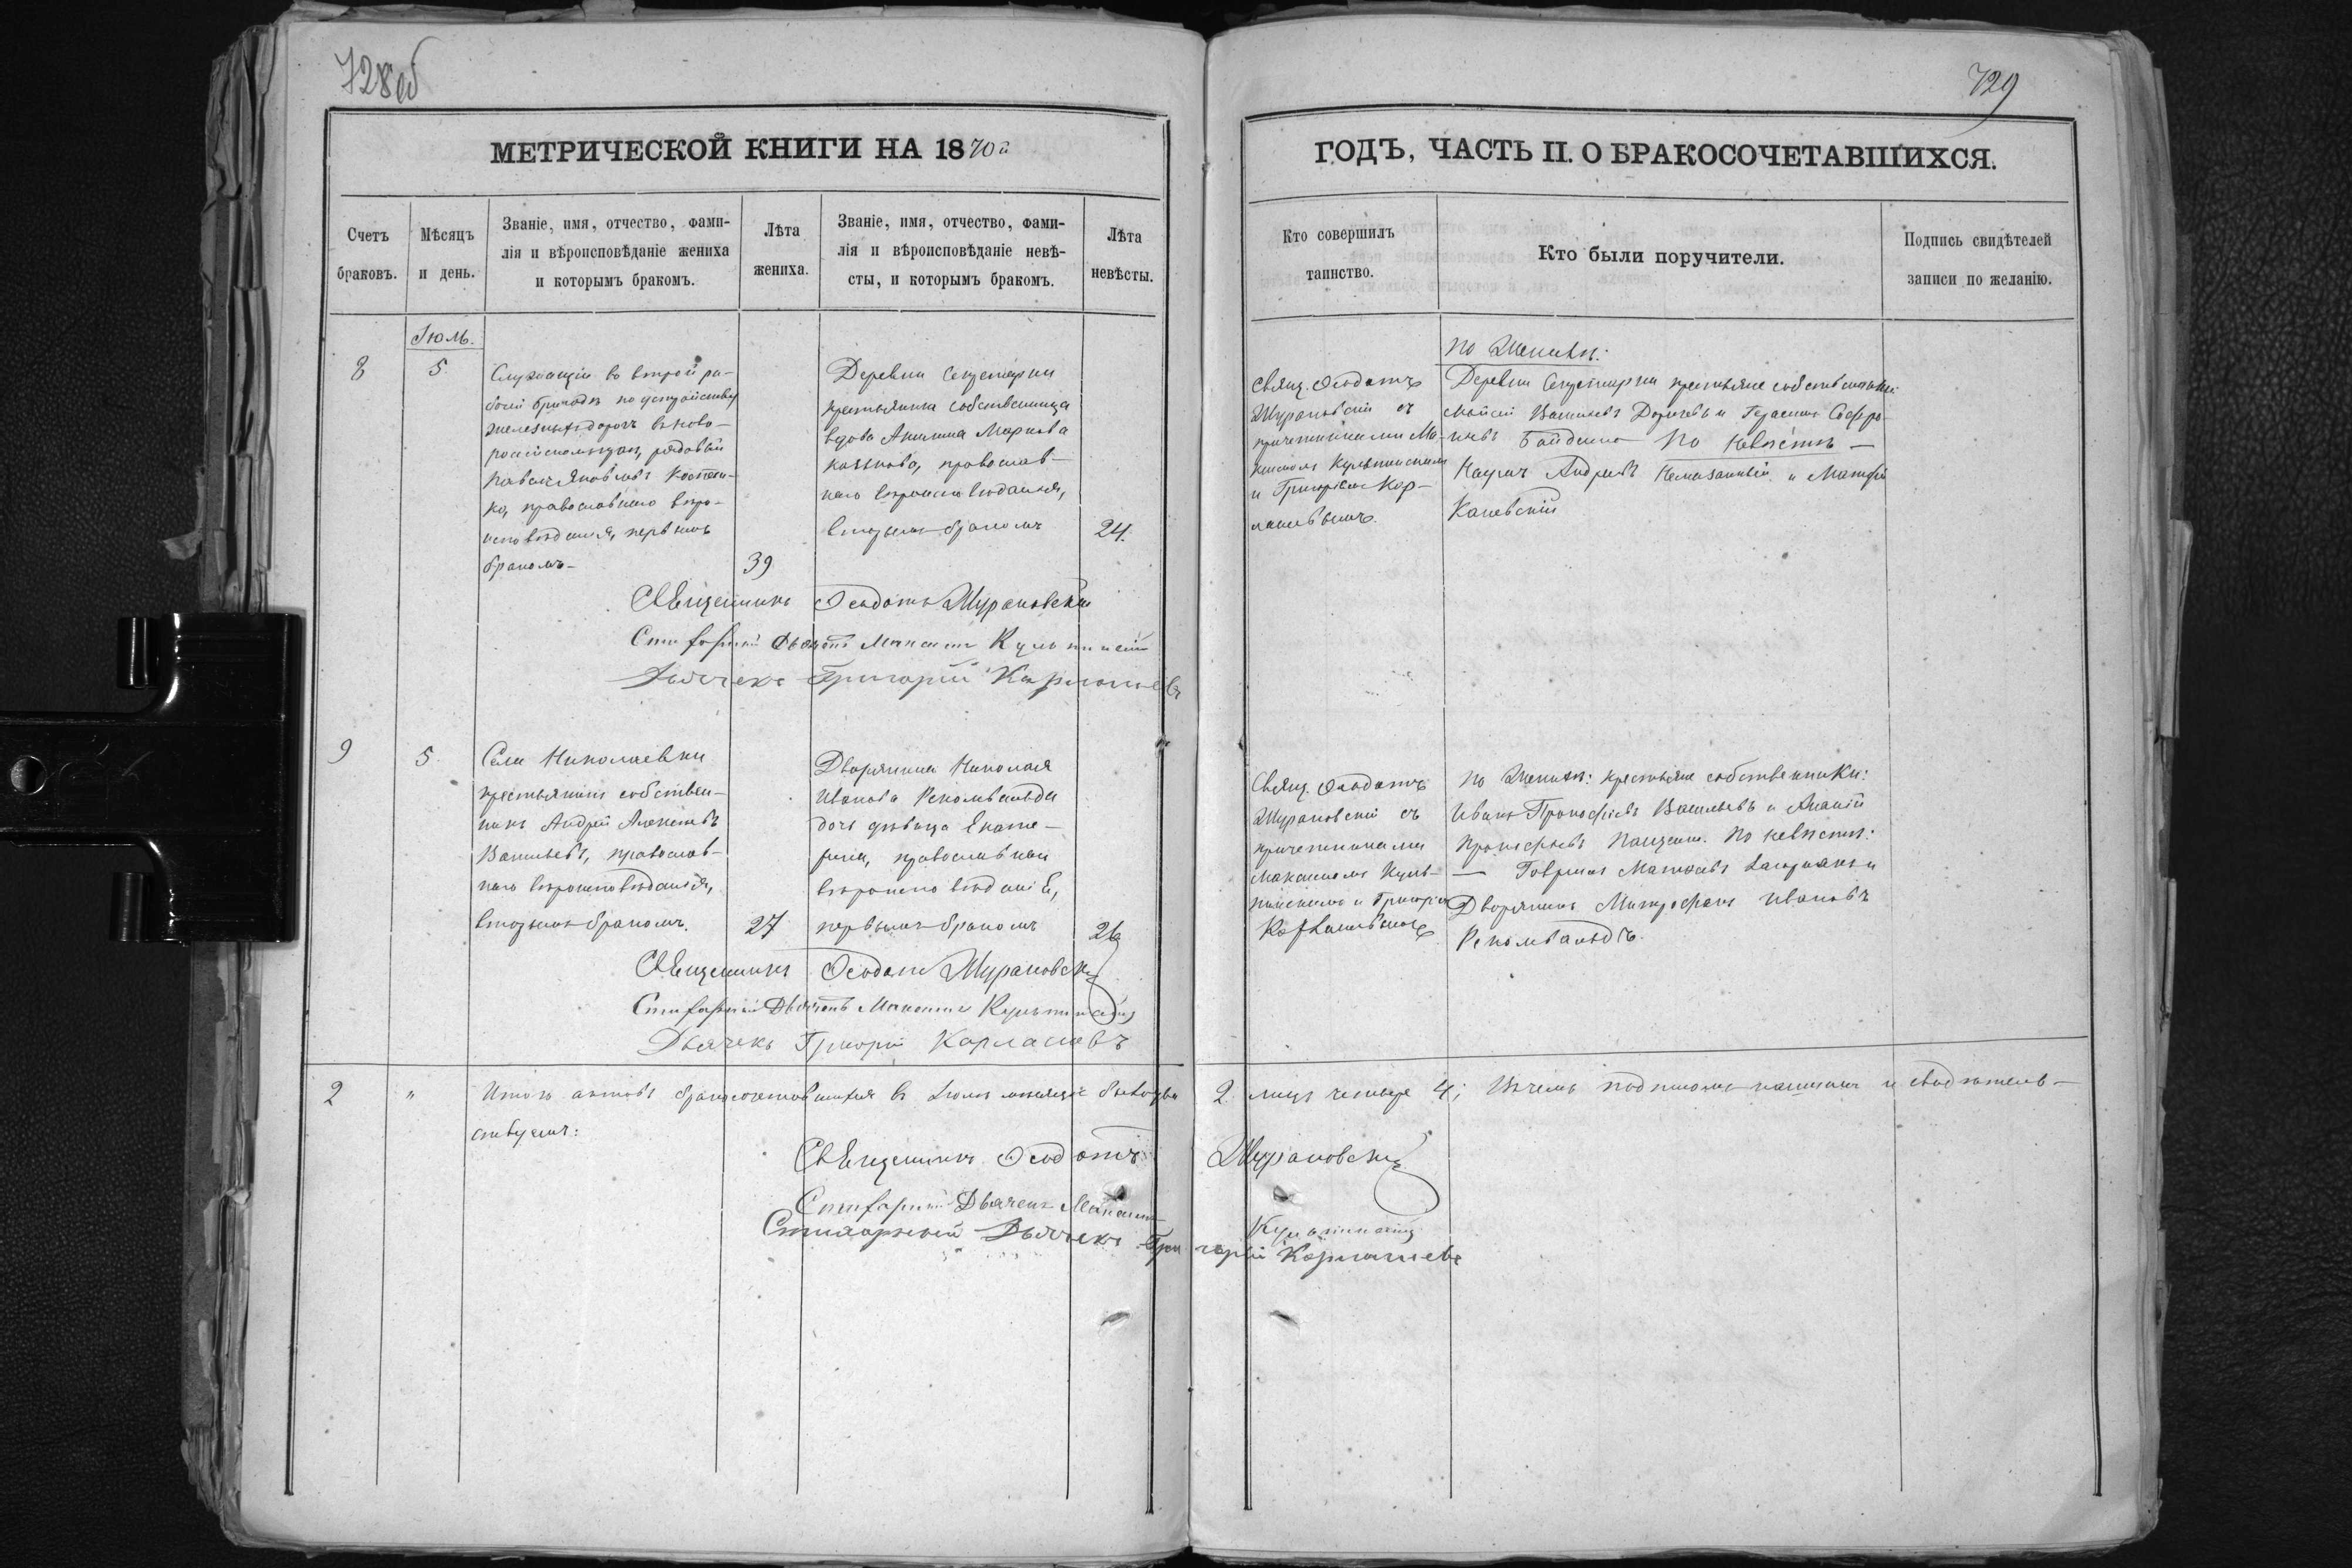 728об
729
МЕТРИЧЕСКОЙ КНИГИ НА 1870й
ГОДЪ, ЧАСТЬ II. О БРАКОСОЧЕТАВШИХСЯ.
Счетъ браковъ.
Мѣсяцъ и день.
Званіе, имя, отчество, фами-
лія и вѣроисповѣданіе жениха
и которымъ бракомъ.
Лѣта жениха.
Званіе, имя, отчество, фами-
лія и вѣроисповѣданіе невѣ-
сты, и которымъ бракомъ.
Лѣта невѣсты.
Кто совершилъ
таинство.
Кто были поручители.
Подпись свидѣтелей
записи по желанію.
Іюль.
8
5
Служащій во второй ра-
бочей бригадѣ по устройству
желѣзныхъ дорогъ въ ново-
россійскомъ краѣ, рядовой
Павелъ Яковлевъ
православнаго вѣро-
исповѣданія, первымъ
бракомъ
39
Деревни
крестьянина собственница
вдова Акилина Маркова
православ-
наго вѣроисповѣданія,
вторымъ бракомъ
24.
Свящ. Ѳеодотъ
Шурановскій съ
причетниками Ма-
ксимом Кульпинскимъ
и Григоріемъ Кор-
лашевымъ.
По Женихѣ:
Деревни крестьяне собственники:
Моисей Васильевъ и Герасимъ Софро-
новъ По невѣстѣ —
Наумъ Андреевъ и Матфей
Каневскій
Священникъ Ѳеодотъ Шурановскій
Стихарный Дьячекъ Максимъ Кульпинскій
Дьячекъ Григорій Корлашевъ
9
5.
Села Николаевки
крестьянинъ собствен-
никъ Андрей Алексѣевъ
Васильевъ, православ-
наго вѣроисповѣданія,
вторымъ бракомъ.
27
Дворянина Николая
Иванова
дочь дѣвица Екате-
рина, православнаго
вѣроисповѣданіе,
первымъ бракомъ
26
Свящ. Ѳеодотъ
Шурановскій съ
причетниками
Максимомъ Куль-
пинскимъ и Григоріемъ
Корлашевымъ
По Женихѣ: крестьяне собственники:
Иванъ Прокофьевъ Васильевъ и Ананій
Прокофьевъ По невѣстѣ:
— Гавріилъ Матвѣевъ и
Дворянинъ Митрофанъ Ивановъ
Священникъ Ѳеодотъ Шурановскій
Стихарный Дьячекъ Максимъ Кульпинскій
Дьячекъ Григорій Корлашевъ
2
"
Итого актовъ бракосочетавшихся въ Іюлѣ мѣсяцѣ было два 2 лицъ четыре 4; Въ чемъ подписомъ нашимъ и свидѣтель-
ствуемъ:
Священникъ Ѳеодотъ Шурановскій
Стихарный Дьячекъ Максимъ Кульпинскій
Стихарный Дьячекъ Григорій Корлашевъ